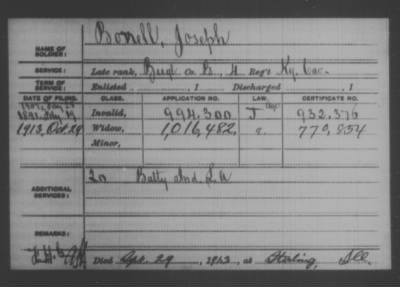 Bonell, Joseph
NAME OF SOLDIER:
SERVICE: Late rank, Bugl Co. G, 4 Reg't Ky. Cav.
TERM OF SERVICE: Enlisted , 1 Discharged , 1
DATE OF FILING. CLASS. APPLICATION NO. LAW. CERTIFICATE NO.
1891, July Invalid, 994,300 J 932,376
1913, Oct. 29 Widow, 1,016,482 770,854
Minor,
ADDITIONAL SERVICES: 20 Batty Ind. L A
REMARKS:
Died Apr. 29, 1913, at Sterling, Ill.